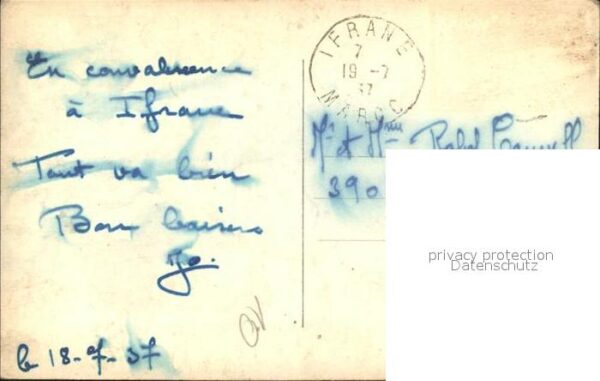 En convalescence
à Ifrane
Tout va bien
Bons baisers
Jo.
le 18-7-37
IFRANE
7
19-7
37
MAROC
Mr et Mme
390
privacy protection
Datenschutz